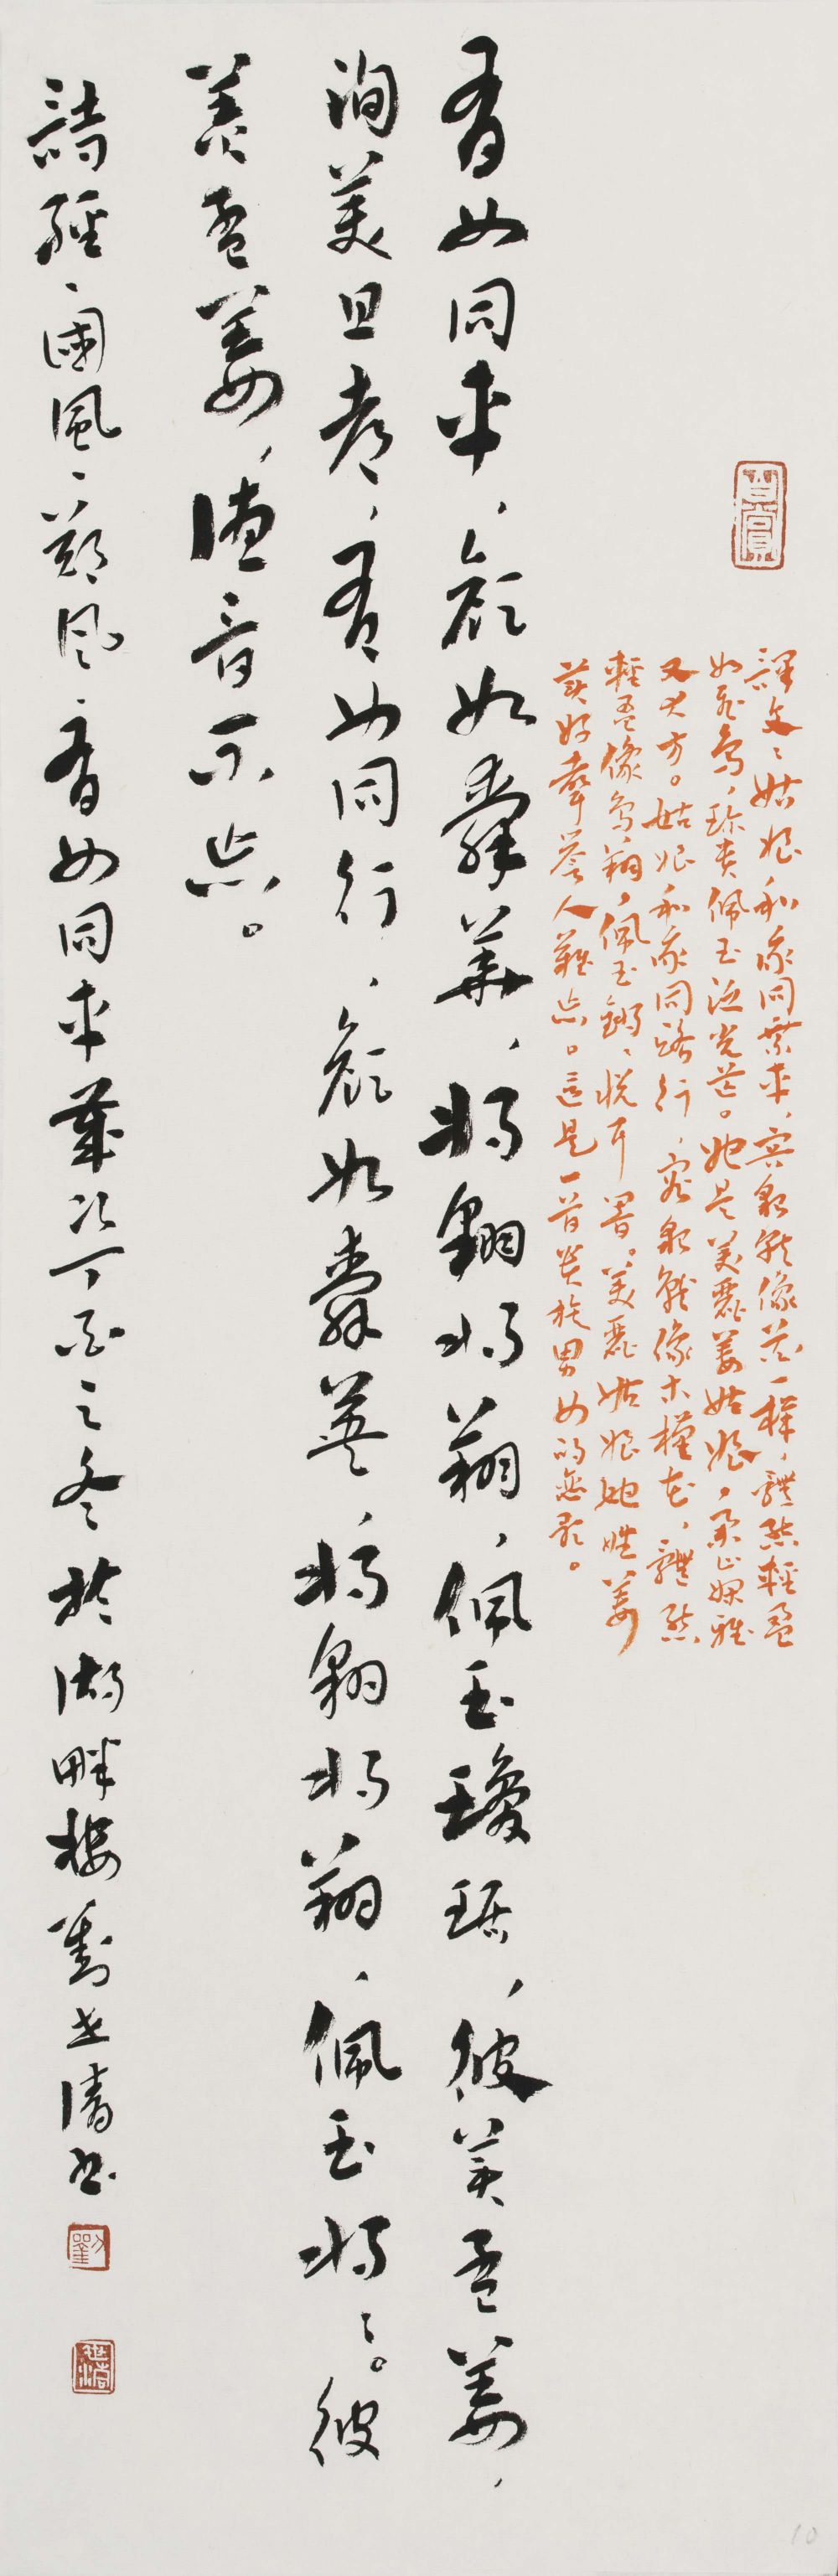 譯文：姑娘和我同乘車，容貌就像花一樣，體態輕盈
如飛鳥，珍貴佩玉泛光芒。她是美麗姜姑娘，柔止嫻雅
又大方。姑娘和我同路行，容貌就像木槿花，體態
輕盈像鳥翔，佩玉鏘鏘悅耳響。美麗姑娘她姓姜
美好聲譽人難忘。這是一首貴族男女的戀歌。
有女同車，顏如舜華，將翱將翔，佩玉瓊琚，彼美孟姜，
洵美且都，有女同行，顏如舜英，將翱將翔，佩玉將將。彼
美孟姜，德音不忘。
詩經、國風、鄭風、有女同車 歲次 之冬於湖畔樓劉世清書
劉